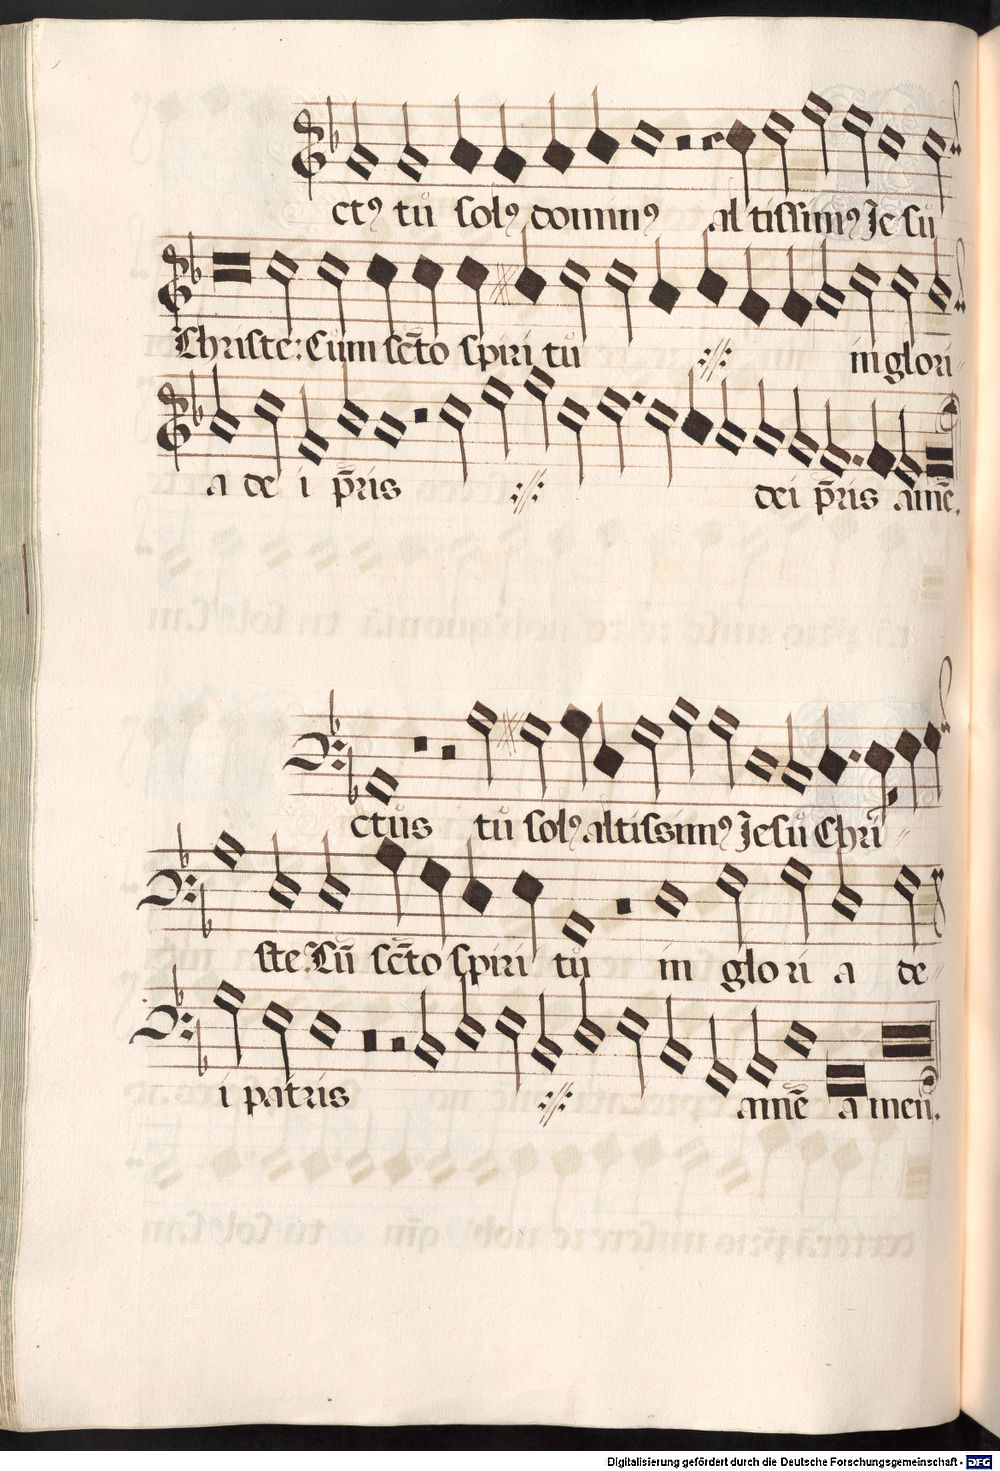 ctꝰ tu solꝰ dominꝰ altissimꝰ Jesu
Christe: Cum scto spiri tu in glori
a de i pris dei pris amē.
ctus tu solꝰ altissimꝰ Jesu Chri
ste: Cū scto spiri tu in glo ri a de
i patris amē amen.
Digitalisierung gefördert durch die Deutsche Forschungsgemeinschaft - DFG